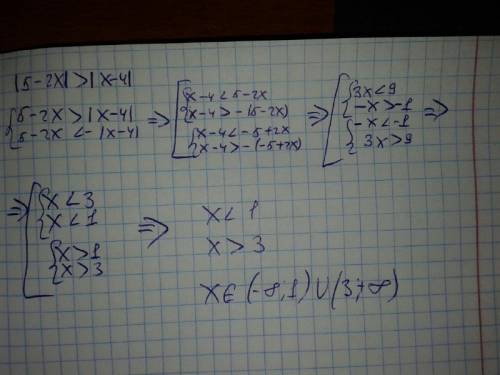 |5-2x|>|x-4|
{5-2x>|x-4|
{5-2x<-|x-4|
=> [{x-4<5-2x
{x-4>-(5-2x)
{x-4<-5+2x
{x-4>-(-5+2x)
=> [{3x<9
{-x>-1
{-x<-1
{3x>9
=>
=> [{x<3
{x<1
{x>1
{x>3
=> x<1
x>3
x∈(-∞;1)∪(3;+∞)